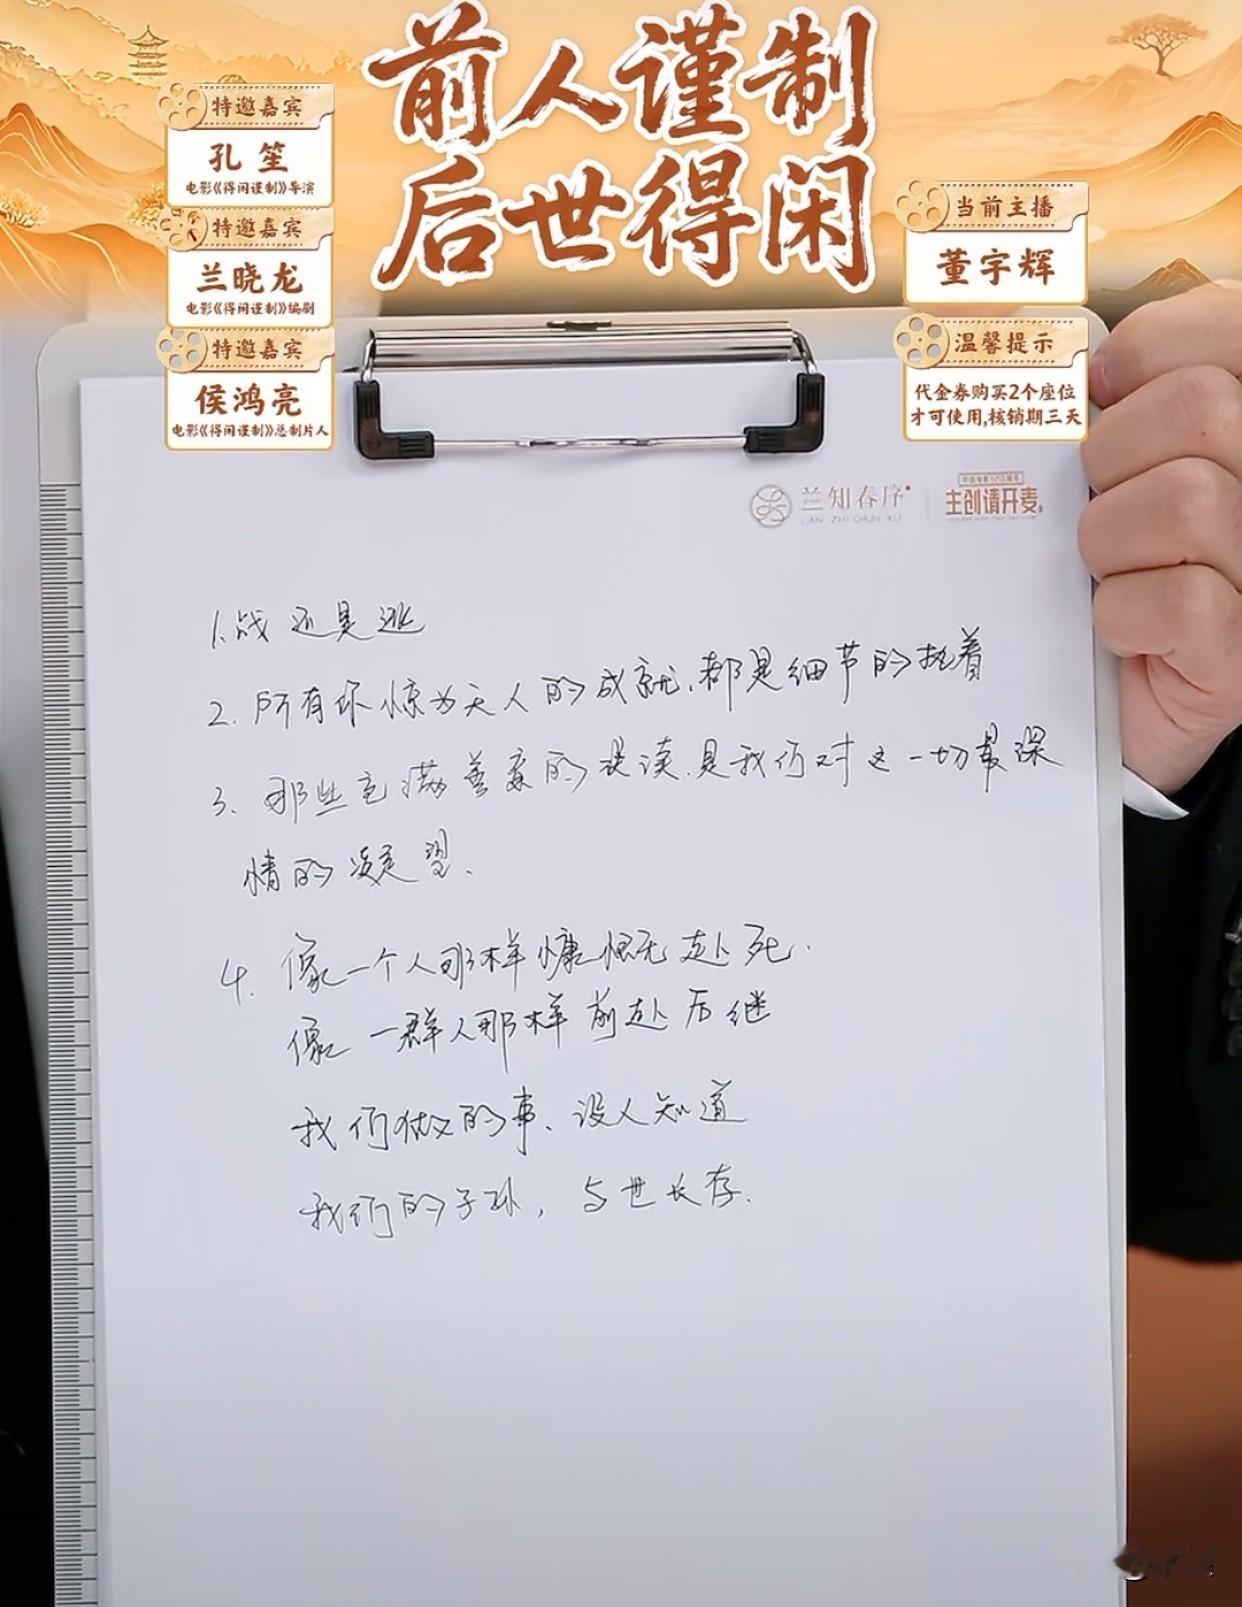 前人谨制
后世得闲
特邀嘉宾
孔笙
电影《得闲谨制》导演
特邀嘉宾
兰晓龙
电影《得闲谨制》编剧
特邀嘉宾
侯鸿亮
电影《得闲谨制》总制片人
当前主播
董宇辉
温馨提示
代金券购买2个座位
才可使用,核销期三天
兰知春序
LAN ZHI CHUN XU
主创请开麦
1.战还是逃
2.所有你惊为天人的成就,都是细节的执着
3.那些充满善意的误读,是我们对这一切最深
情的凝望.
4.像一个人那样慷慨赴死.
像一群人那样前赴后继
我们做的事、没人知道
我们的子孙,与世长存.